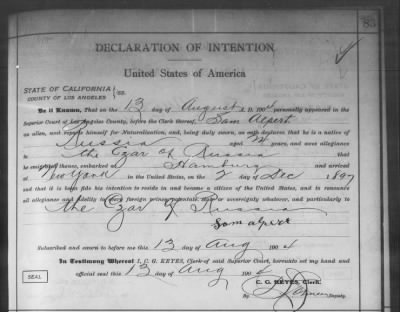 83
DECLARATION OF INTENTION.
United States of America
STATE OF CALIFORNIA
COUNTY OF LOS ANGELES
} ss.
Be it Known, That on the 13 day of August A. D. 1904 personally appeared in the
Superior Court of Los Angeles County, before the Clerk thereof, Sam Alpert
an alien, and reports himself for Naturalization, and, being duly sworn, on oath declares that he is a native of
Russia aged years, and owes allegiance
to the Czar of Russia that
he emigrated thence, embarked at Hamburg and arrived
at New York in the United States, on the 2 day of Dec 1897
and that it is bona fide his intention to reside in and become a citizen of the United States, and to renounce
all allegiance and fidelity to every foreign prince, potentate, state or sovereignty whatever, and particularly to
the Czar of Russia
Sam alpert
Subscribed and sworn to before me this 13 day of Aug 190 4
In Testimony Whereof I, C. G. KEYES, Clerk of said Superior Court, hereunto set my hand and
official seal this 13 day of Aug 190 4
SEAL
C. G. KEYES, Clerk
By Deputy.